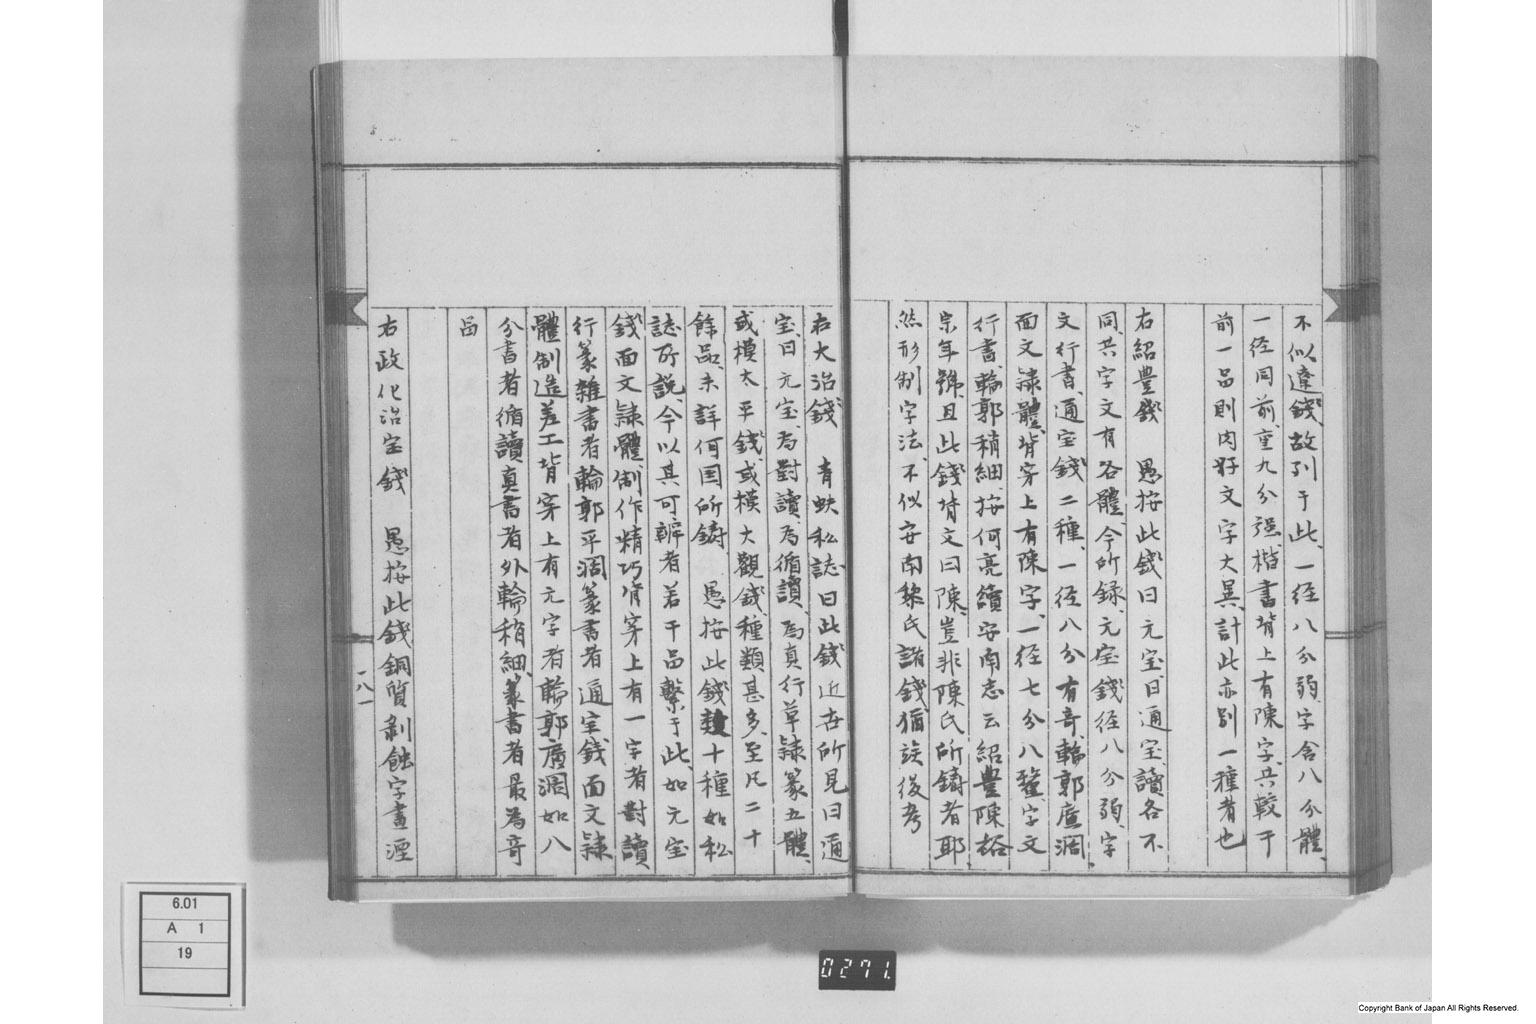 不似遼錢、故列于此、一径八分弱、字含八分體、
一径同前、重九分强、楷書、背上有陳字、共較于
前一品則肉好文字大異、計此亦別一種者也
右紹豊錢　愚按此錢曰元宝、曰通宝、讀各不
同、共字文有各體、今所録、元宝錢径八分弱、字
文行書、通宝錢二種、一径八分有奇、輪郭廣濶、
面文隷體、背穿上有陳字、一径七分八釐、字文
行書、輪郭稍細、按何亮續安南志云紹豊陳裕
宗年號、且此錢背文曰陳、豈非陳氏所鑄者耶
然形制字法、不似安南黎氏諸錢、猶竢後考
右大治錢　青蚨私誌曰此錢近世所見曰通
宝、曰元宝、為對讀、為循讀、為真行草隷篆五體、
或模太平錢、或模大觀錢、種類甚多、至凡二十
餘品、未詳何国所鑄　愚按此錢數十種如私
誌所説、今以其可辨者若干品繫于此、如元宝
錢面文隷體、制作精巧、背穿上有一字者對讀
行篆雜書者輪郭平濶、篆書者通宝錢面文隷
體制造差工、背穿上有元字者輪郭廣濶如八
分書者循讀真書者外輪稍細、篆書者最為奇
品
右政化治宝錢　愚按此錢銅質剥蝕字畫湮
一八一
6.01
A 1
19
0271
Copyright Bank of Japan All Rights Reserved.